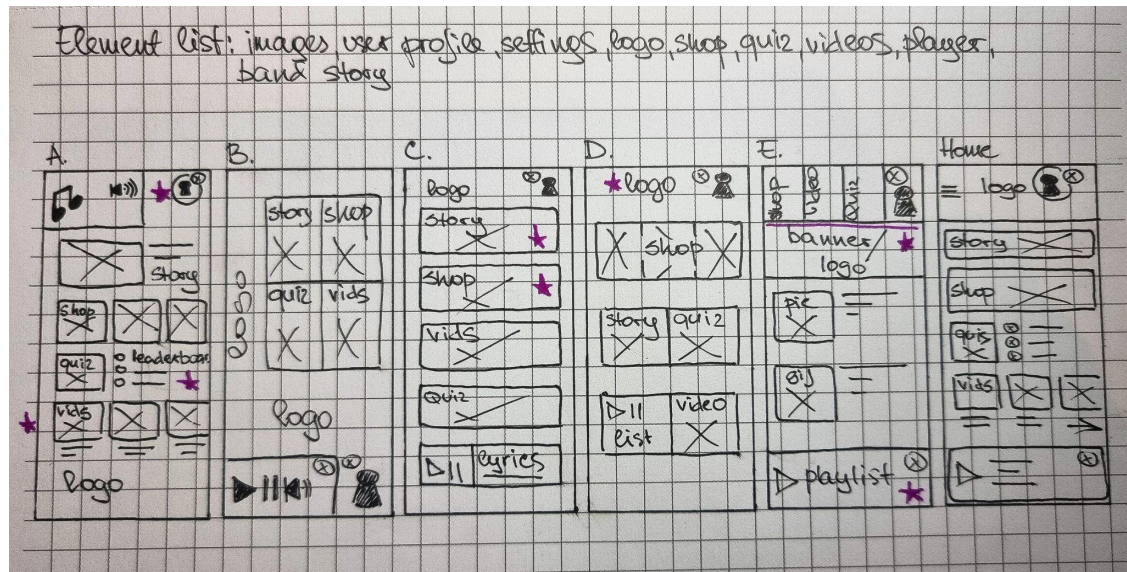 Element list: images, user profile, settings, logo, shop, quiz, videos, player,
band story
A.
Story
shop
quiz
leaderboar
vids
logo
B.
story shop
quiz vids
logo
C.
logo
story
shop
vids
Quiz
lyrics
D.
logo
shop
story quiz
list video
E.
shop
video
quiz
banner/
logo
pic
gif
playlist
Home
logo
story
shop
quiz
vids